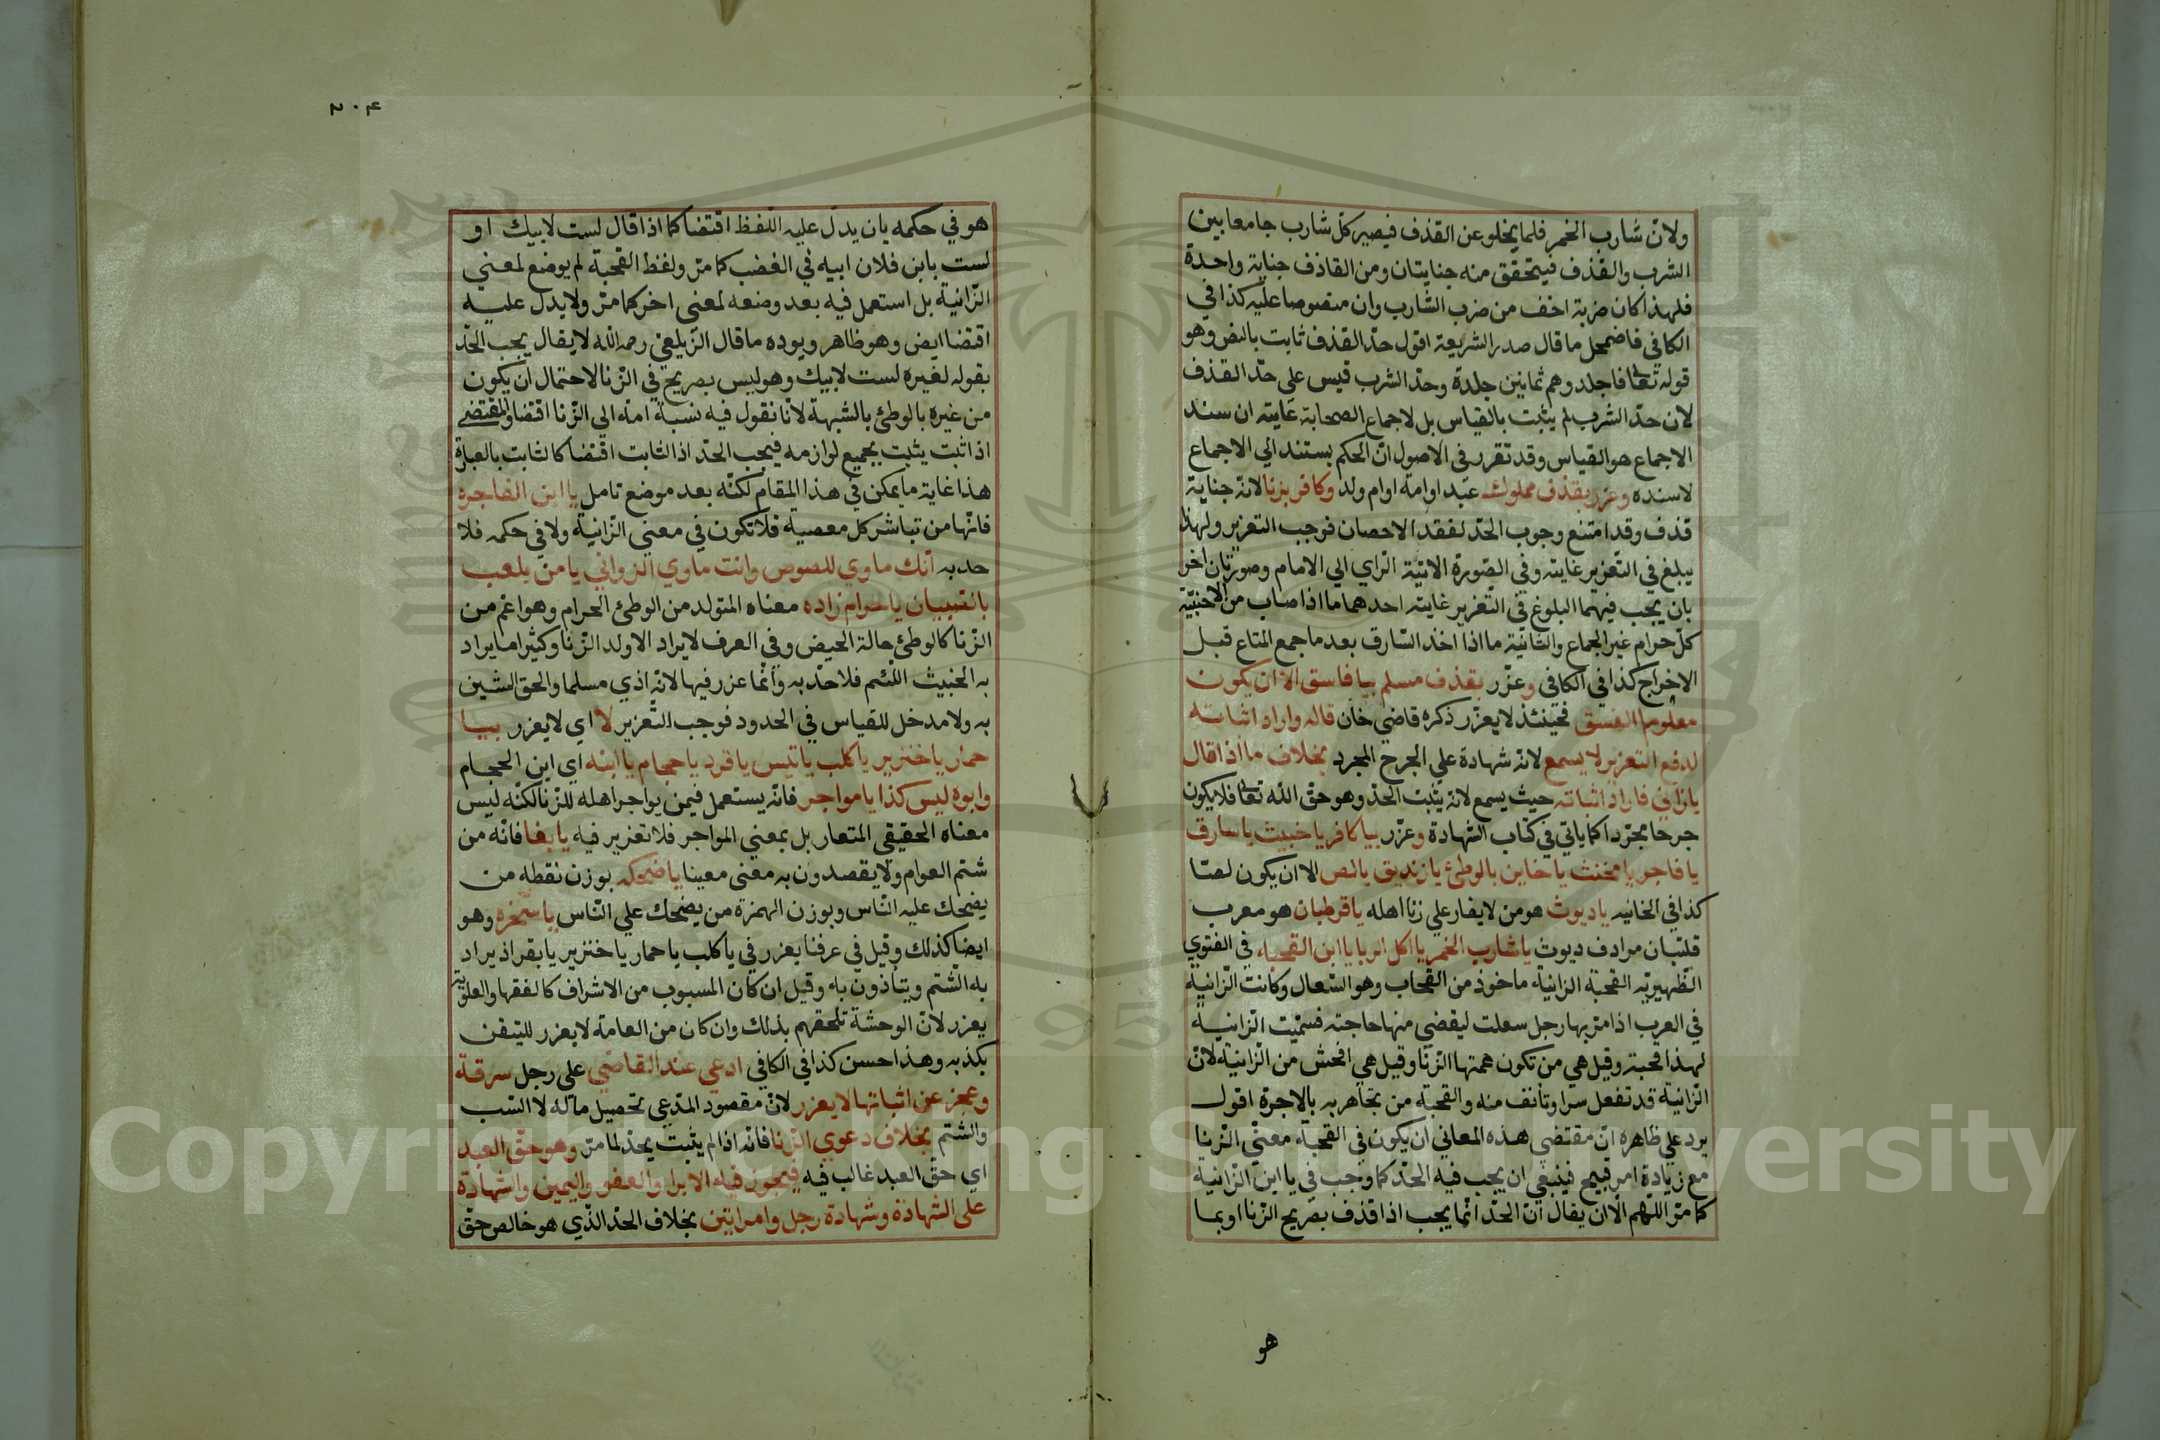 ولان شارب الخمر فلما يخلو عن القذف فيصير كل شارب جامعا بين
الشرب والقذف فيتحقق منه جنايتان ومن القاذف جناية واحدة
فلهذا كان ضربة اخف من ضرب الشارب وان منصوصا عليه كذا في
الكافي فاضمحل ما قال صدر الشريعة اقول حد القذف ثابت بالنص وهو
قوله تعالى فاجلدوهم ثمانين جلدة وحد الشرب قيس على حد القذف
لان حد الشرب لم يثبت بالقياس بل لاجماع الصحابة غايته ان سند
الاجماع هو القياس وقد تقرر في الاصول ان الحكم يستند الي الاجماع
لاسنده وعزر بقذف مملوك عبد او امة او ام ولد وكافر بزنا لانه جناية
قذف وقد امتنع وجوب الحد لفقد الاحصان فوجب التعزير ولهذا
يبلغ في التعزير غايته وفي الصورة الاتية الراي الي الامام وصورتان اخر
بان يجب فيهما البلوغ في التعزير غايته احدهما ما اذا صاب من الاجنبية
كل حرام غير الجماع والثانية ما اذا اخذ السارق بعد ما جمع المتاع قبل
الاخراج كذا في الكافي وعزر بقذف مسلم بيا فاسق الا ان يكون
معلوم الفسق فحينئذ لا يعزر ذكره قاضي خان قاله واراد اثباته
لدفع التعزير لا يسمع لانه شهادة علي الجرح المجرد بخلاف ما اذا قال
يا زاني فاراد اثباته حيث يسمع لانه يثبت الحد وهو حق الله تعالى فلا يكون
جرحا مجردا كما ياتي في كتاب الشهادة وعزر بيا كافر يا خبيث يا سارق
يا فاجر يا مخنث يا خاين بالوطئ يا زنديق يالص الا ان يكون لصا
كذا في الخانيه يا ديوث هو من لا يغار علي زنا اهله يا قرطبان هو معرب
قلتبان مرادف ديوث يا شارب الخمر يا اكل الربا يا ابن القحبة في الفتوي
الظهيرية القحبة الزانية ماخوذ من القحاب وهو السعال وكانت الزانية
في العرب اذا مر بها رجل سعلت ليقضي منها حاجته فسميت الزانية
لهذا قحبة وقيل هي من تكون همتها الزنا وقيل هي افحش من الزانية لان
الزانية قد تفعل سرا وتانف منه والقحبة من تجاهر به بالاجرة اقول
يرد علي ظاهره ان مقتضي هذه المعاني ان يكون في القحبة معني الزنا
مع زيادة امر قبيح فينبغي ان يجب فيه الحد كما وجب في يا ابن الزانية
كما مر اللهم الا ان يقال ان الحد انما يجب اذا قذف بصريح الزنا او بما
هو
٢٠٤
هو في حكمه بان يدل عليه اللفظ اقتضا كما اذا قال لست لابيك او
لست بابن فلان ابيه في الغضب كما مر ولفظ القحبة لم يوضع لمعني
الزانية بل استعمل فيه بعد وضعه لمعني اخر كما مر ولا يدل عليه
اقتضا ايض وهو ظاهر ويوده ما قال الزيلعي رحمه الله لا يقال يجب الحد
بقوله لغيره لست لابيك وهو ليس بصريح في الزنا لاحتمال ان يكون
من غيره بالوطئ بالشبهة لانا نقول فيه نسبة امه الي الزنا اقتضا والمقتضي
اذا ثبت يثبت بجميع لوازمه فيجب الحد اذ الثابت اقتضا كالثابت بالعبارة
هذا غاية ما يمكن في هذا المقام لكنه بعد موضع تامل يا ابن الفاجرة
فانها من تباشر كل معصية فلا تكون في معني الزانية ولا في حكمه فلا
حد به انك ماوي للصوص وانت ماوي الزواني يا من يلعب
بالصبيان يا حرام زاده معناه المتولد من الوطئ الحرام وهو اعم من
الزنا كالوطئ حالة الحيض وفي العرف لا يراد الا ولد الزنا وكثيرا ما يراد
به الخبيث اللئيم فلا حد به وانما عزر فيها لانه اذي مسلما والحق الشين
به ولا مدخل للقياس في الحدود فوجب التعزير لا اي لا يعزر بيا
حمار يا خنزير يا كلب يا تيس يا قرد يا حجام يا ابنه اي ابن الحجام
وابوه ليس كذا يا مواجر فانه يستعمل فيمن يواجر اهله للزنا لكنه ليس
معناه الحقيقي المتعار بل بمعني المواجر فلا تعزير فيه يا بغا فانه من
شتم العوام ولا يقصدون به معني معينا يا ضحكه بوزن نقطه من
يضحك عليه الناس وبوزن الهمزة من يضحك علي الناس يا سخره وهو
ايضا كذلك وقيل في عرفنا يعزر في يا كلب يا حمار يا خنزير يا بقر اذ يراد
به الشتم ويتأذون به وقيل ان كان المسبوب من الاشراف كالفقها والعلوية
يعزر لان الوحشة تلحقهم بذلك وان كان من العامة لا يعزر للتيقن
بكذبه وهذا حسن كذا في الكافي ادعي عند القاضي علي رجل سرقة
وعجز عن اثباتها لا يعزر لان مقصود المدعي تحصيل ماله لا السب
والشتم بخلاف دعوي الزنا فانه اذا لم يثبت يحد لما مر وهو حق العبد
اي حق العبد غالب فيه فيجوز فيه الابرا والعفو واليمين والشهادة
على الشهادة وشهادة رجل وامراتين بخلاف الحد الذي هو خالص حق
Copyright © King Saud University